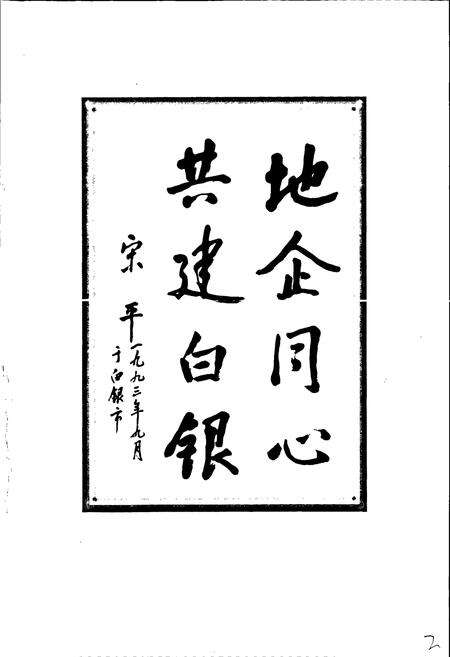 地企同心
共建白银
宋平
一九九三年九月
于白银市
2